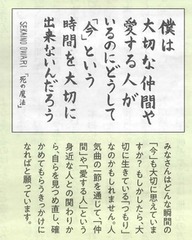 僕は
大切な仲間や
愛する人が
いるのにどうして
「今」という
時間を大切に
出来ないんだろう
SEKAI NO OWARI 「死の魔法」
みなさんはどんな瞬間の
「今」も大切に思えていま
すか？もしかしたら、大
切に生きている「つもり」
なのかもしれません。人
気曲の一節を通じて、「仲
間」や「愛する人」という
身近な人との関わりか
ら、自らを見つめ直し、確
かめてもらうきっかけに
なればと願っています。